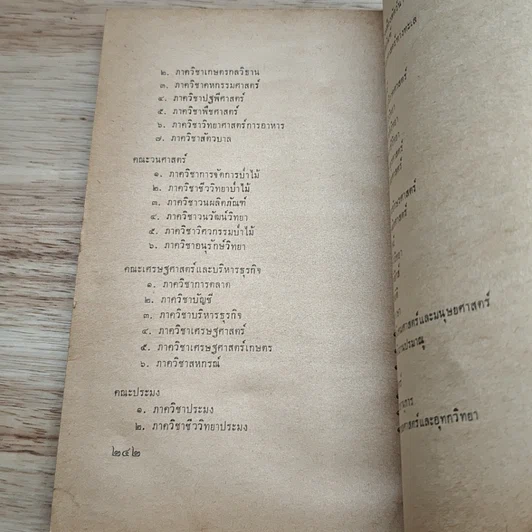 ๒. ภาควิชาเกษตรกลวิธาน
๓. ภาควิชาคหกรรมศาสตร์
๔. ภาควิชาปฐพีศาสตร์
๕. ภาควิชาพืชศาสตร์
๖. ภาควิชาวิทยาศาสตร์การอาหาร
๗. ภาควิชาสัตวบาล
คณะวนศาสตร์
๑. ภาควิชาการจัดการป่าไม้
๒. ภาควิชาชีววิทยาป่าไม้
๓. ภาควิชาวนผลิตภัณฑ์
๔. ภาควิชาวนวัฒน์วิทยา
๕. ภาควิชาวิศวกรรมป่าไม้
๖. ภาควิชาอนุรักษ์วิทยา
คณะเศรษฐศาสตร์และบริหารธุรกิจ
๑. ภาควิชาการตลาด
๒. ภาควิชาบัญชี
๓. ภาควิชาบริหารธุรกิจ
๔. ภาควิชาเศรษฐศาสตร์
๕. ภาควิชาเศรษฐศาสตร์เกษตร
๖. ภาควิชาสหกรณ์
คณะประมง
๑. ภาควิชาประมง
๒. ภาควิชาชีววิทยาประมง
๒๔๒
ศาสตร์และมนุษยศาสตร์
ศาสตร์และอุทกวิทยา